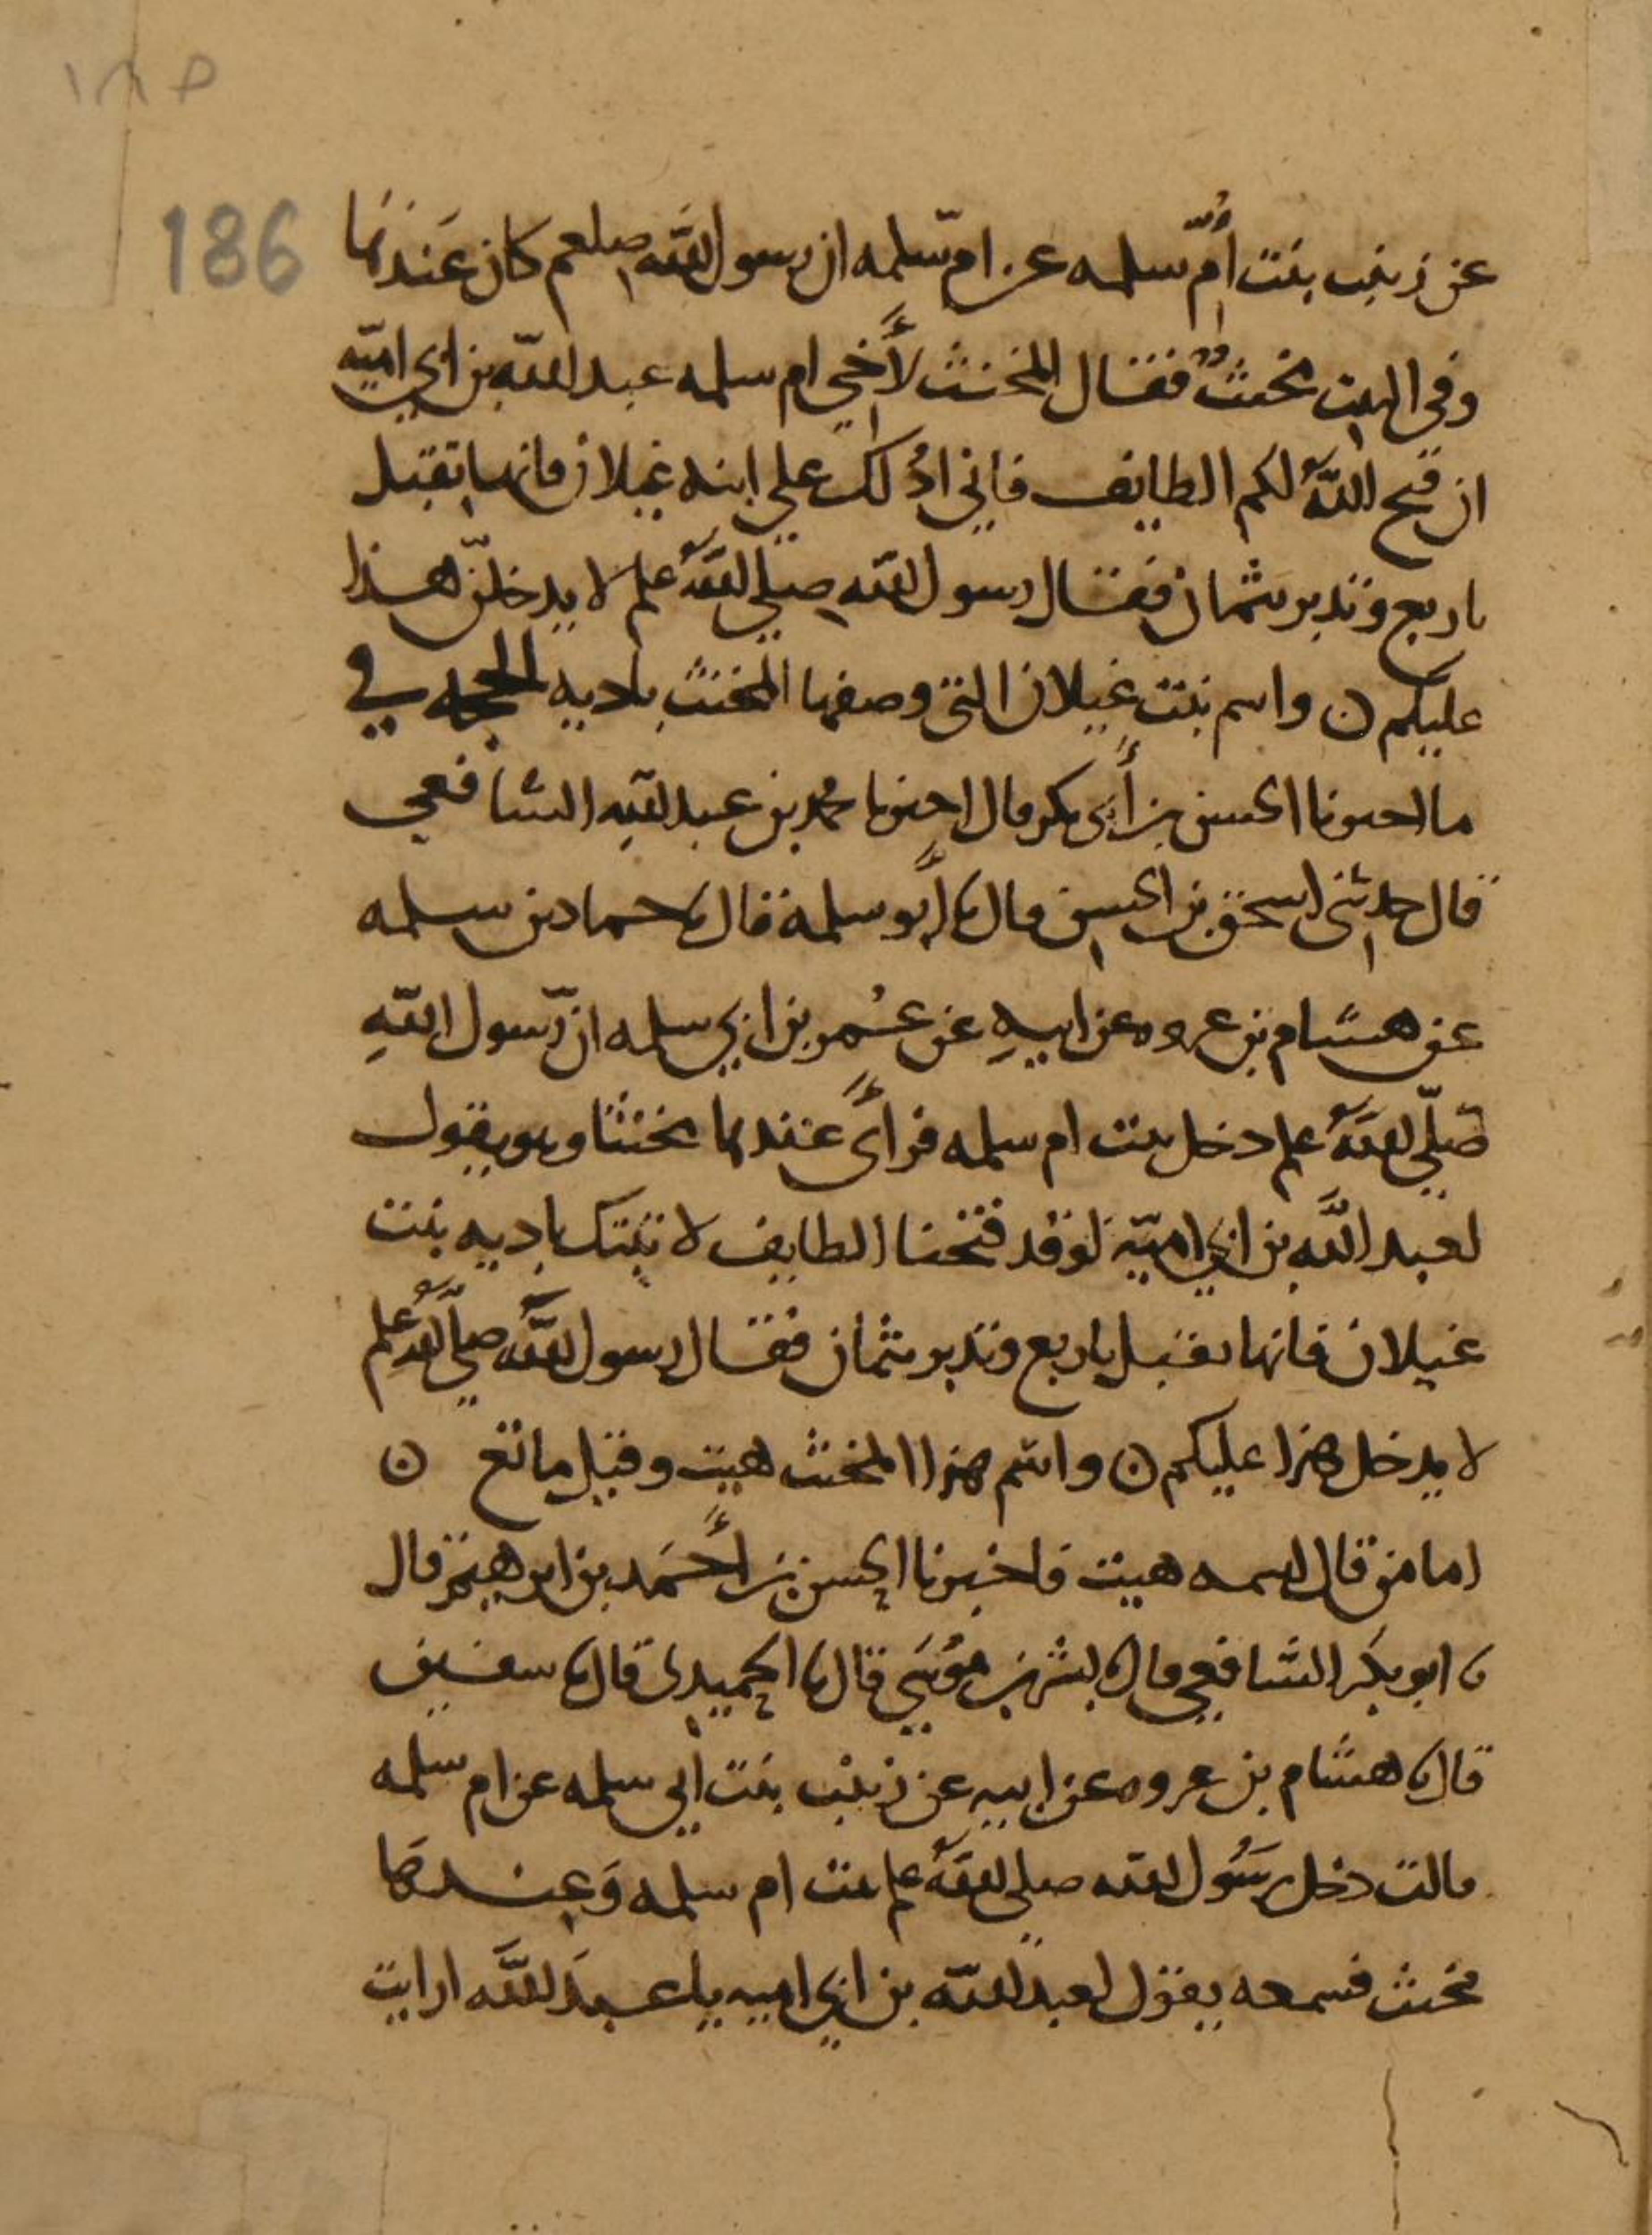 ١٨٥
186
عن زينب بنت أمّ سلمه عن ام سلمه ان رسول اللّه صلعم كان عندها
وفي البيت مخنثٌ فقال المخنث لأخي ام سلمه عبد اللّه بن ابي اميّه
ان فتح اللّهُ لكم الطايف فاني ادُلك علي ابنه غيلان فانها تقبل
باربع وتدبر بثمان فقال رسول اللّه صلي اللّهُ علم لا يدخلنّ هذا
عليكم ن واسم بنت غيلان التي وصفها المخنث باديه الحجه في
ما اخبرنا الحسن بن أبي بكر قال اخبرنا محمد بن عبد اللّهِ الشافعي
قال حدثني اسحق بن الحسن قال نا أبو سلمة قال نا حماد بن سلمه
عن هشام بن عروه عن ابيهِ عن عُمر بن ابي سلمه انّ رسول اللّهِ
صلّي اللّهُ علم دخل بيت ام سلمه فرأى عندها مخنثا وهو يقول
لعبد اللَّه بن ابي اميّة لو قد فتحنا الطايف لا نبتك باديه بنت
غيلان فانها تقبل باربع وتدبر بثمان فقال رسول اللَّه صلّي اللّهُ علم
لا يدخل هذا عليكم ن واسم هذا المخنث هيت وقيل ماتع ن
اما من قال اسمه هيت فاخبرنا الحسن بن أحمَد بن ابرهيم قال
نا ابو بكر الشافعي قال نا بشر بن موُسَي قال نا الحميدى قال نا سفين
قال نا هشام بن عروه عن ابيه عن زينب بنت ابي سلمه عن ام سلمه
قالت دخل رسُول اللّه صلي اللّهُ علم بيت ام سلمه وَعندها
مخنث فسمعه يقول لعبد اللّه بن ابي اميه يا عبدَ اللَّه ارايت